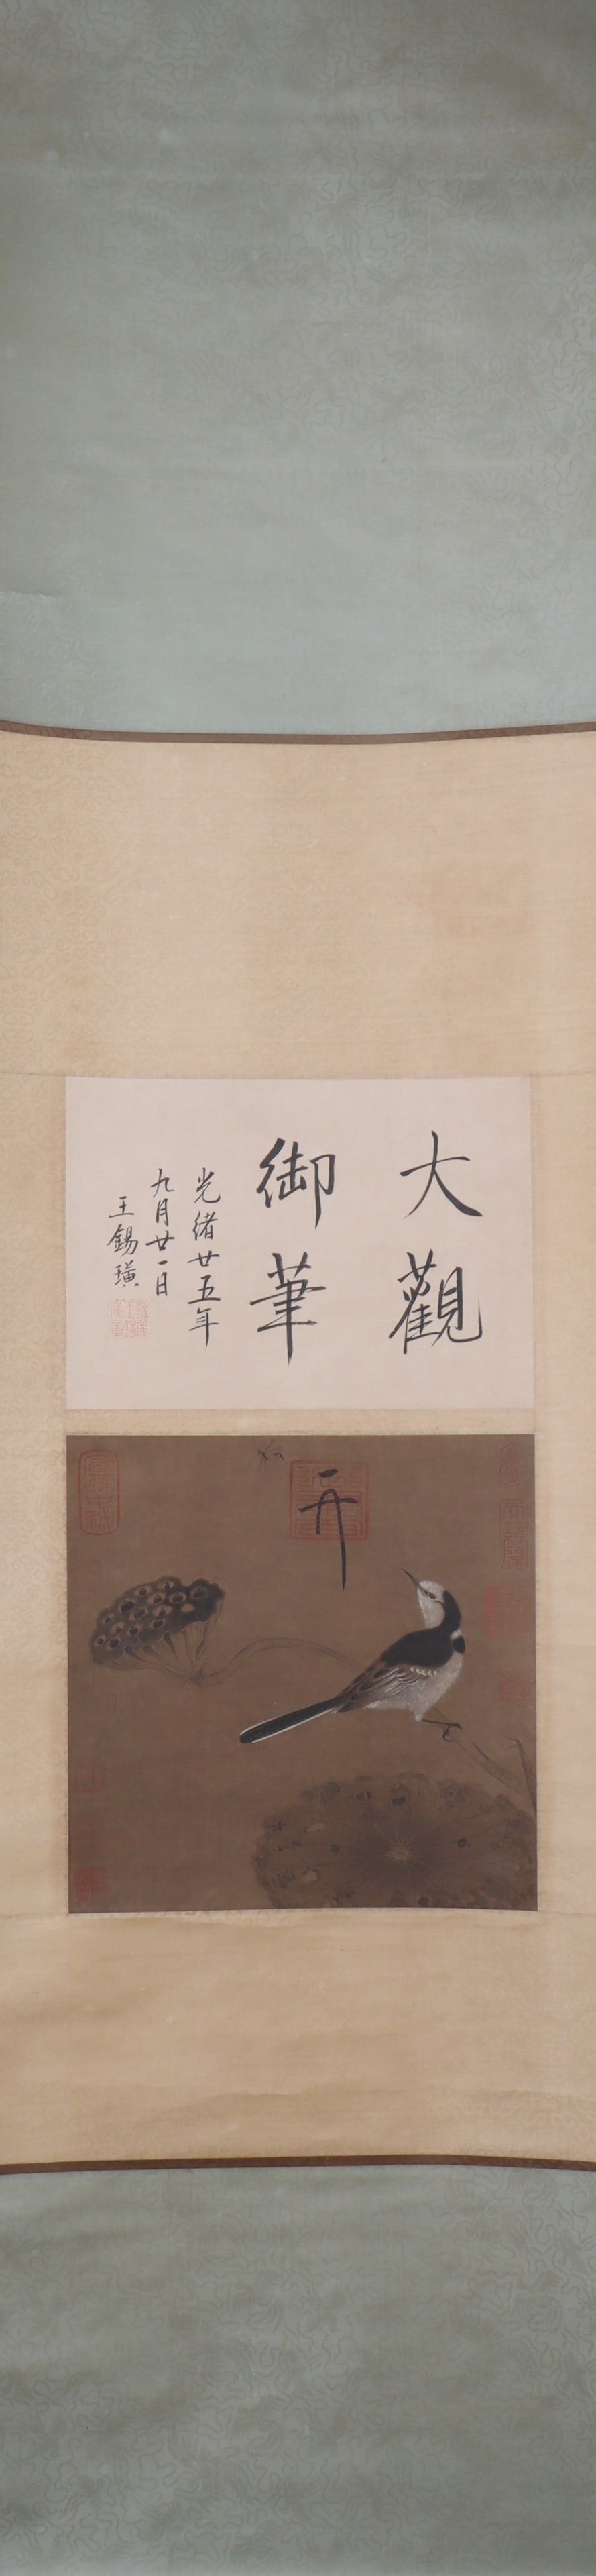 大觀
御筆
光緒廿五年
九月廿一日
王錫璜